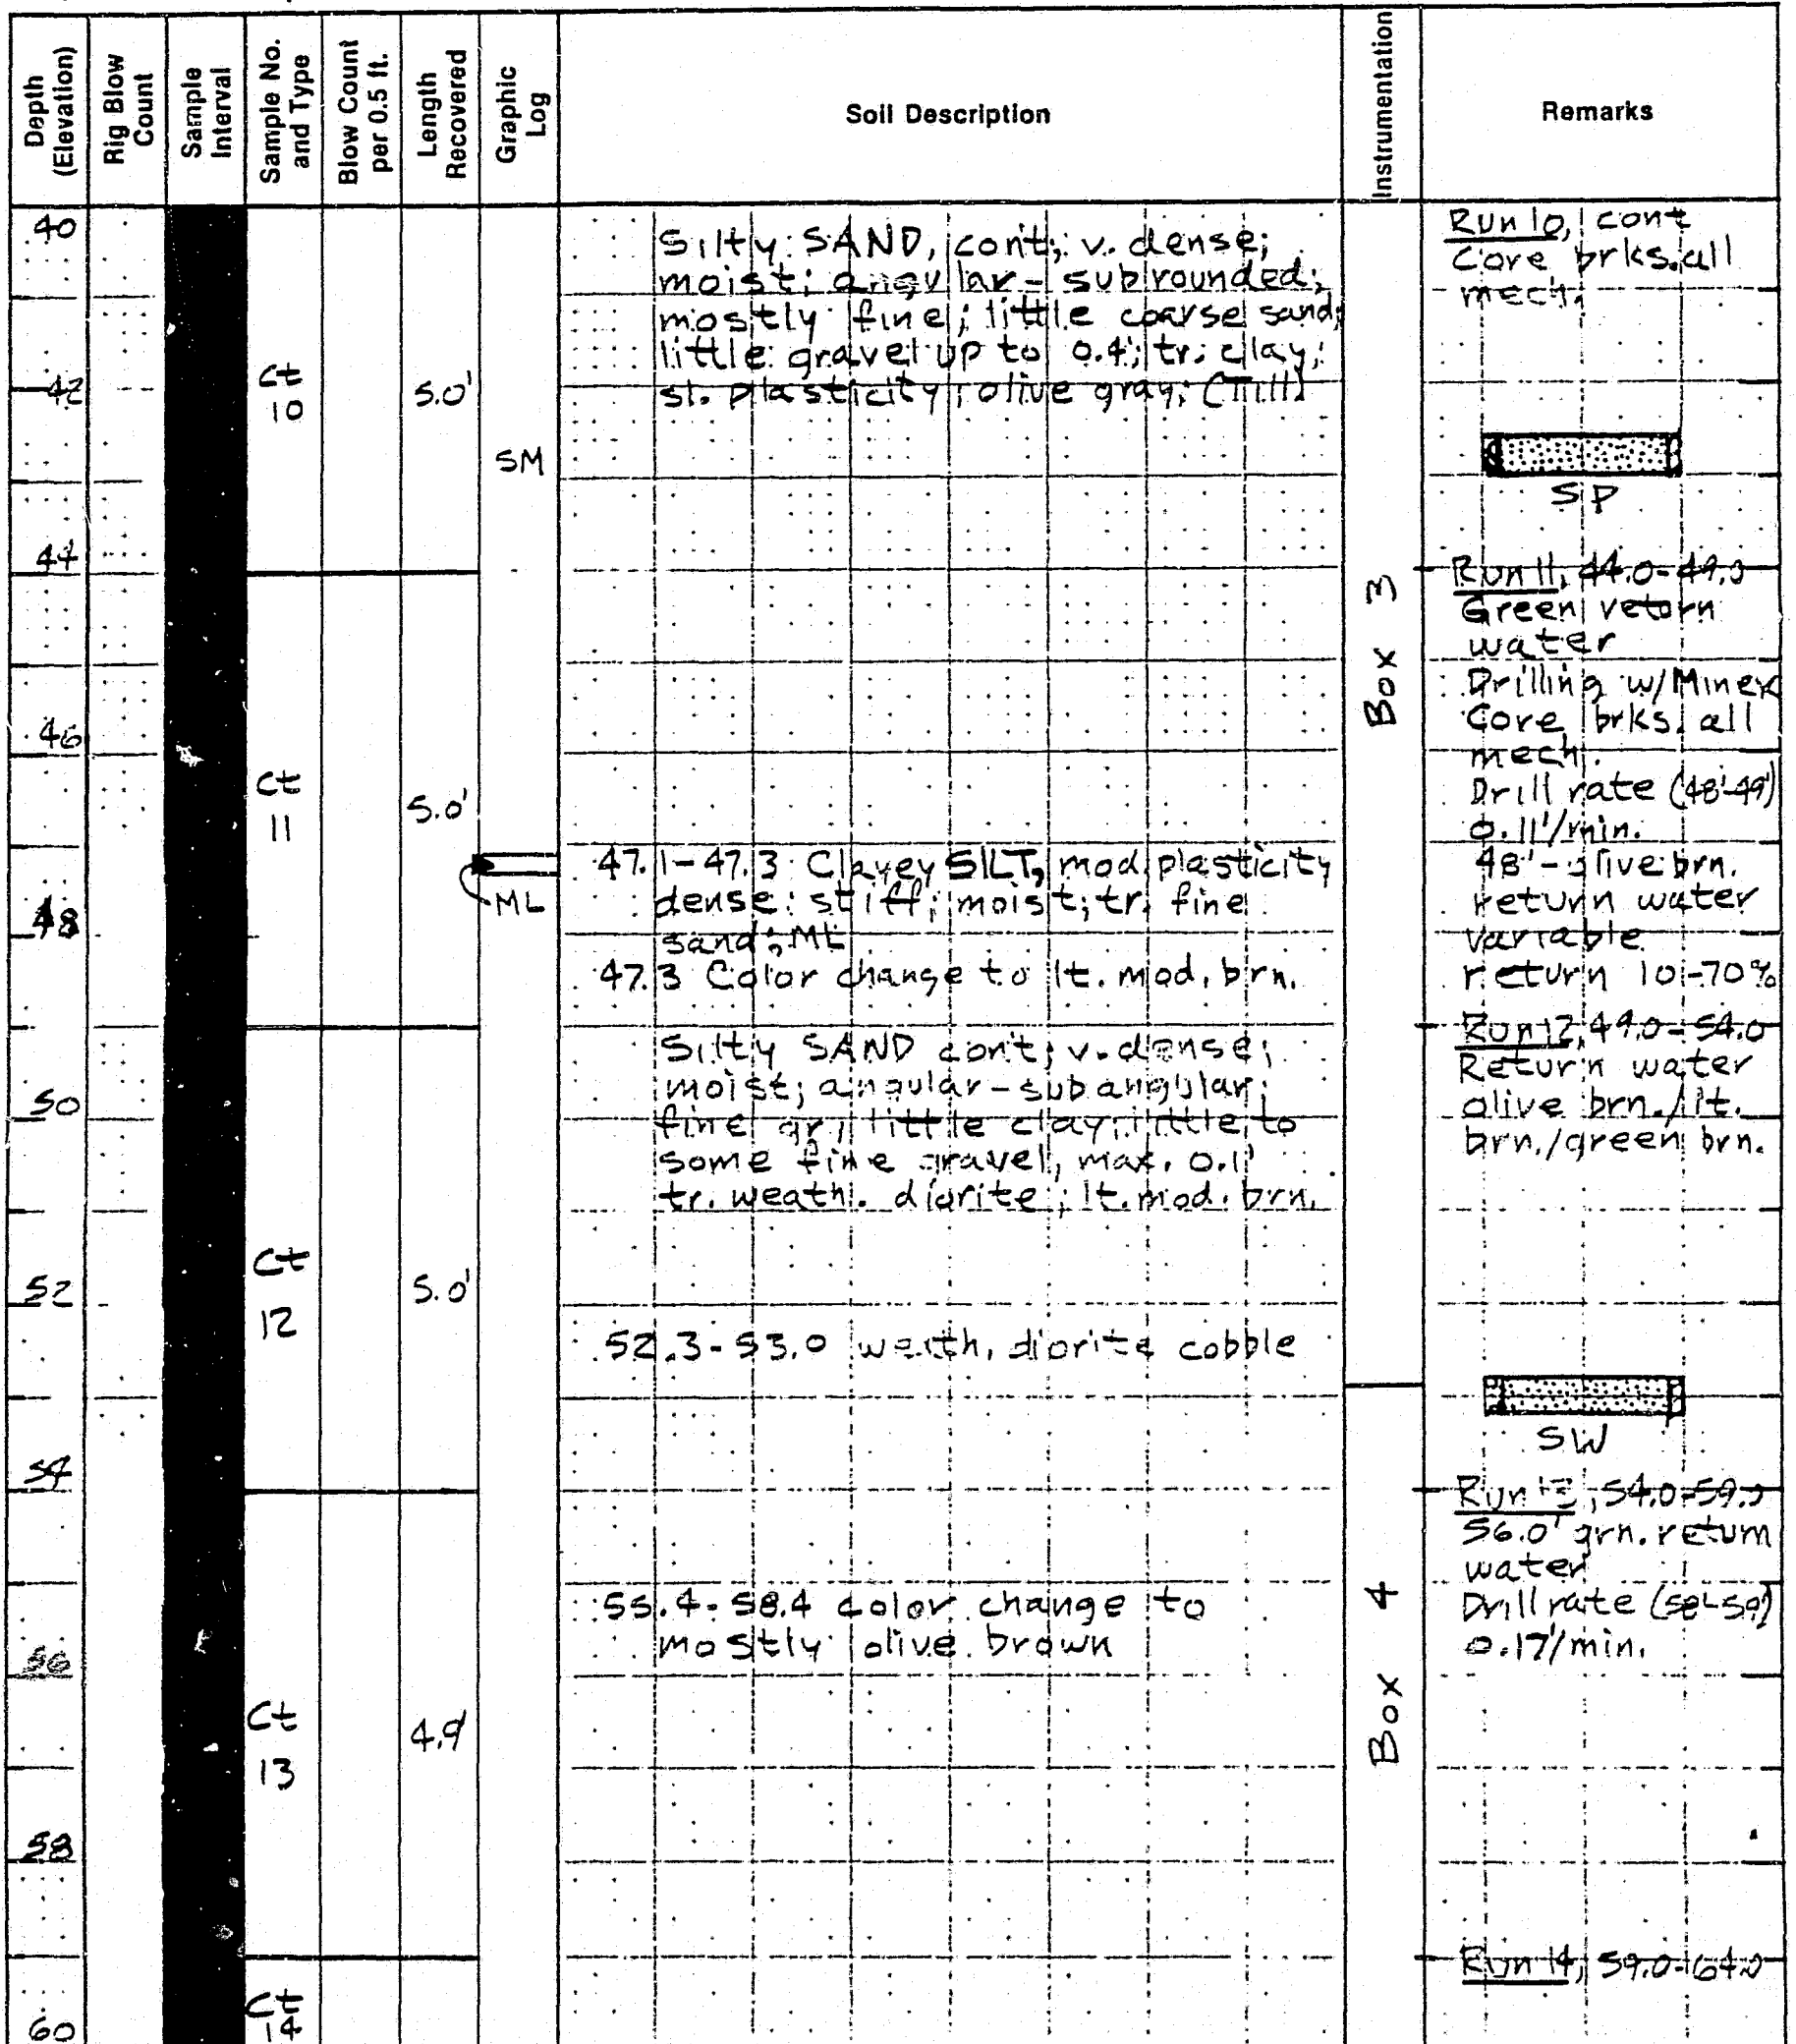 Depth (Elevation)
Rig Blow Count
Sample Interval
Sample No. and Type
Blow Count per 0.5 ft.
Length Recovered
Graphic Log
Soil Description
Instrumentation
Remarks
40
42
44
46
48
50
52
54
56
58
60
Ct
10
Ct
11
Ct
12
Ct
13
Ct
14
5.0'
5.0'
5.0'
4.9'
SM
ML
Silty SAND, cont; v. dense;
moist; angular - subrounded;
mostly fine; little coarse sand;
little gravel up to 0.4'; tr. clay;
sl. plasticity; olive gray; (Till)
47.1-47.3 Clayey SILT, mod plasticity
dense; stiff; moist; tr. fine
sand; ML
47.3 Color change to lt. mod. brn.
Silty SAND cont; v. dense;
moist; angular - subangular;
fine gr; little clay; little to
some fine gravel, max. 0.1'
tr. weath. diorite; lt. mod. brn.
52.3-53.0 weath. diorite cobble
55.4-58.4 color change to
mostly olive brown
Box 3
Box 4
Run 10, cont
Core brks. all
mech.
SP
Run 11, 44.0-49.0
Green return
water
Drilling w/Minex
Core brks. all
mech.
Drill rate (48'-49')
0.11'/min.
48' - olive brn.
return water
variable
return 10-70%
Run 12, 49.0-54.0
Return water
olive brn./lt.
brn./green brn.
SW
Run 13, 54.0-59.0
56.0' grn. return
water
Drill rate (58'-59')
0.17'/min.
Run 14, 59.0-64.0